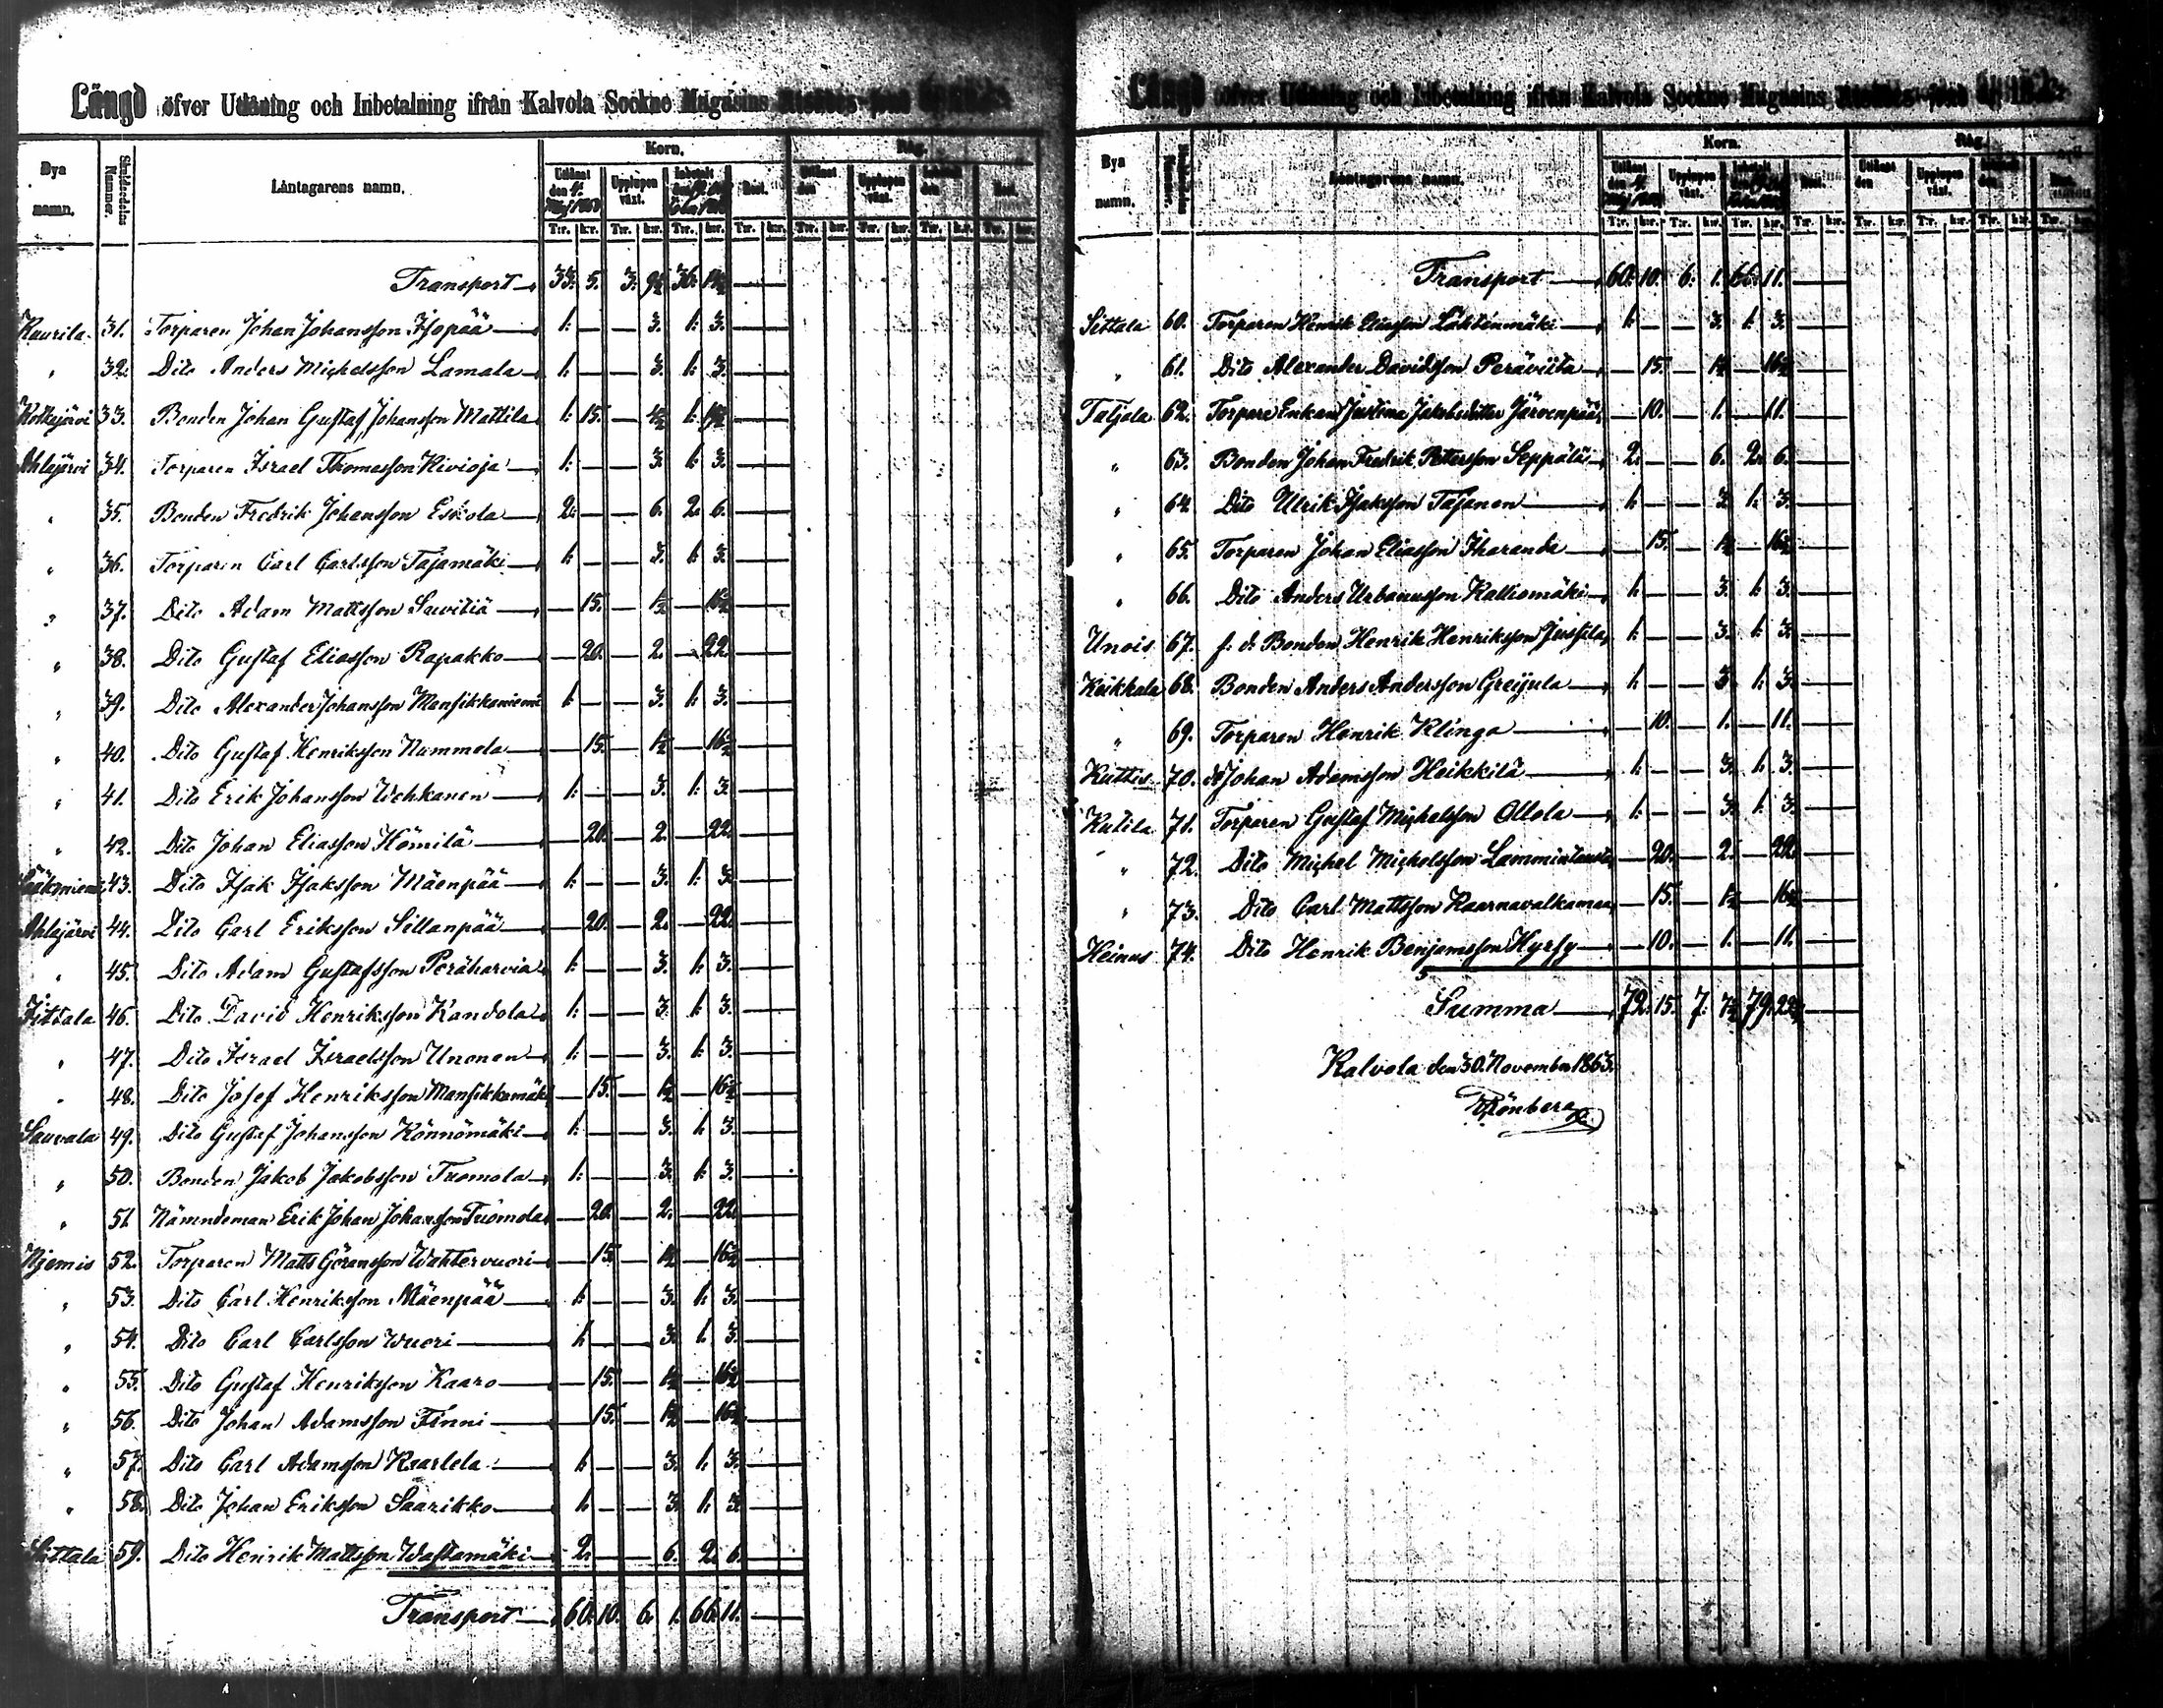 Längd öfver Utlåning och Inbetalning ifrån Kalvola Sockne Magasins
Bya namn. Skuldsedelns Nummer. Låntagarens namn. Korn. Råg.
Utlånt den 4 Maj 1863 Upplupen växt. Inbetalt den Rest. Utlånt den Upplupen växt. Inbetalt den Rest.
T:r. k:r. T:r. k:r. T:r. k:r. T:r. k:r. T:r. k:r. T:r. k:r. T:r. k:r. T:r. k:r.
Transport 33. 5. 3. 9½ 36. 14½ —
Kuurila 31. Torparen Johan Johansson Isopää 1. — — 3. 1. 3. —
" 32. Dito Anders Michelsson Lamala 1. — — 3. 1. 3. —
Kotkajärvi 33. Bonden Johan Gustaf Johansson Mattila 1. 15. — 4½ 1. 19½ —
Ahlajärvi 34. Torparen Israel Thomasson Kivioja 1. — — 3. 1. 3. —
" 35. Bonden Fredrik Johansson Eskola 2. — — 6. 2. 6. —
" 36. Torparen Carl Carlsson Tajamäki 1. — — 3. 1. 3. —
" 37. Dito Adam Mattsson Savitiä — 15. — 1½ — 16½ —
" 38. Dito Gustaf Eliasson Rapakko — 20. — 2. — 22. —
" 39. Dito Alexander Johansson Mansikkaniemi 1. — — 3. 1. 3. —
" 40. Dito Gustaf Henriksson Nummela — 15. — 1½ — 16½ —
" 41. Dito Erik Johansson Wehkanen 1. — — 3. 1. 3. —
" 42. Dito Johan Eliasson Hömilä — 20. — 2. — 22. —
Sääksniemi 43. Dito Isak Isaksson Mäenpää 1. — — 3. 1. 3. —
Ahlajärvi 44. Dito Carl Eriksson Sillanpää — 20. — 2. — 22. —
" 45. Dito Adam Gustafsson Peräharvia 1. — — 3. 1. 3. —
Sittala 46. Dito David Henriksson Kandola 1. — — 3. 1. 3. —
" 47. Dito Israel Israelsson Unonen 1. — — 3. 1. 3. —
" 48. Dito Josef Henriksson Mansikkamäki — 15. — 1½ — 16½ —
Sauvala 49. Dito Gustaf Johansson Könnömäki 1. — — 3. 1. 3. —
" 50. Bonden Jakob Jakobsson Tuomola 1. — — 3. 1. 3. —
" 51. Nämndeman Erik Johan Johansson Tuomola — 20. — 2. — 22. —
Njemis 52. Torparen Matts Göransson Wahtervuori — 15. — 1½ — 16½ —
" 53. Dito Carl Henriksson Mäenpää 1. — — 3. 1. 3. —
" 54. Dito Carl Carlsson Wuori 1. — — 3. 1. 3. —
" 55. Dito Gustaf Henriksson Kaaro — 15. — 1½ — 16½ —
" 56. Dito Johan Adamsson Finni — 15. — 1½ — 16½ —
" 57. Dito Carl Adamsson Kaarlela 1. — — 3. 1. 3. —
" 58. Dito Johan Eriksson Saarikko 1. — — 3. 1. 3. —
Sittala 59. Dito Henrik Mattsson Wastamäki 2. — — 6. 2. 6. —
Transport 60. 10. 6. 1. 66. 11. —
Längd öfver Utlåning och Inbetalning ifrån Kalvola Sockne Magasins
Bya namn. Låntagarens namn. Korn. Råg.
Utlånt den 4 Maj Upplupen växt. Inbetalt den Rest. Utlånt den Upplupen växt.
T:r. k:r. T:r. k:r. T:r. k:r. T:r. k:r. T:r. k:r. T:r. k:r. T:r. k:r. T:r. k:r.
Transport 60. 10. 6. 1. 66. 11. —
Sittala 60. Torparen Henrik Eliasson Lähteenmäki 1. — — 3. 1. 3. —
" 61. Dito Alexander Davidsson Peräviita — 15. — 1½ — 16½ —
Taljala 62. Torpare Enkan Justina Jakobsdotter Järvenpää — 10. — 1. — 11. —
" 63. Bonden Johan Fredrik Pettersson Seppälä 2. — — 6. 2. 6. —
" 64. Dito Ulrik Isaksson Tajanen 1. — — 3. 1. 3. —
" 65. Torparen Johan Eliasson Iharanda — 15. — 1½ — 16½ —
" 66. Dito Anders Urbanusson Kalliomäki 1. — — 3. 1. 3. —
Unois 67. f. d. Bonden Henrik Henriksson Jussila 1. — — 3. 1. 3. —
Keikkala 68. Bonden Anders Andersson Greijula 1. — — 3. 1. 3. —
" 69. Torparen Henrik Klinga — 10. — 1. — 11. —
Kuttis 70. Johan Adamsson Heikkilä 1. — — 3. 1. 3. —
Kutila 71. Torparen Gustaf Michelsson Ollola 1. — — 3. 1. 3. —
" 72. Dito Michel Michelsson Lammintausta — 20. — 2. — 22. —
" 73. Dito Carl Mattsson Kaarnavalkamaa — 15. — 1½ — 16½ —
Heinus 74. Dito Henrik Benjamsson Hyrsy — 10. — 1. — 11. —
Summa 72. 15. 7. 7½ 79. 22½ —
Kalvola den 30. November 1863.
Rönberg